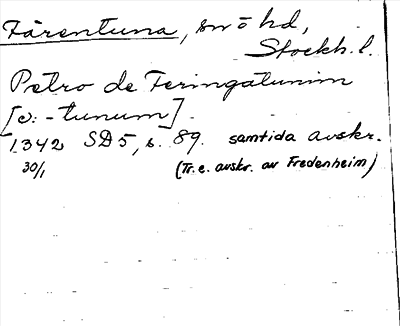 Färentuna, sn o hd,
Stockh. l.
Petro de Feringatunim
[e: -tunum].
1342 SD5, s. 89. samtida avskr.
30/1 (Tr. e. avskr. av Fredenheim)